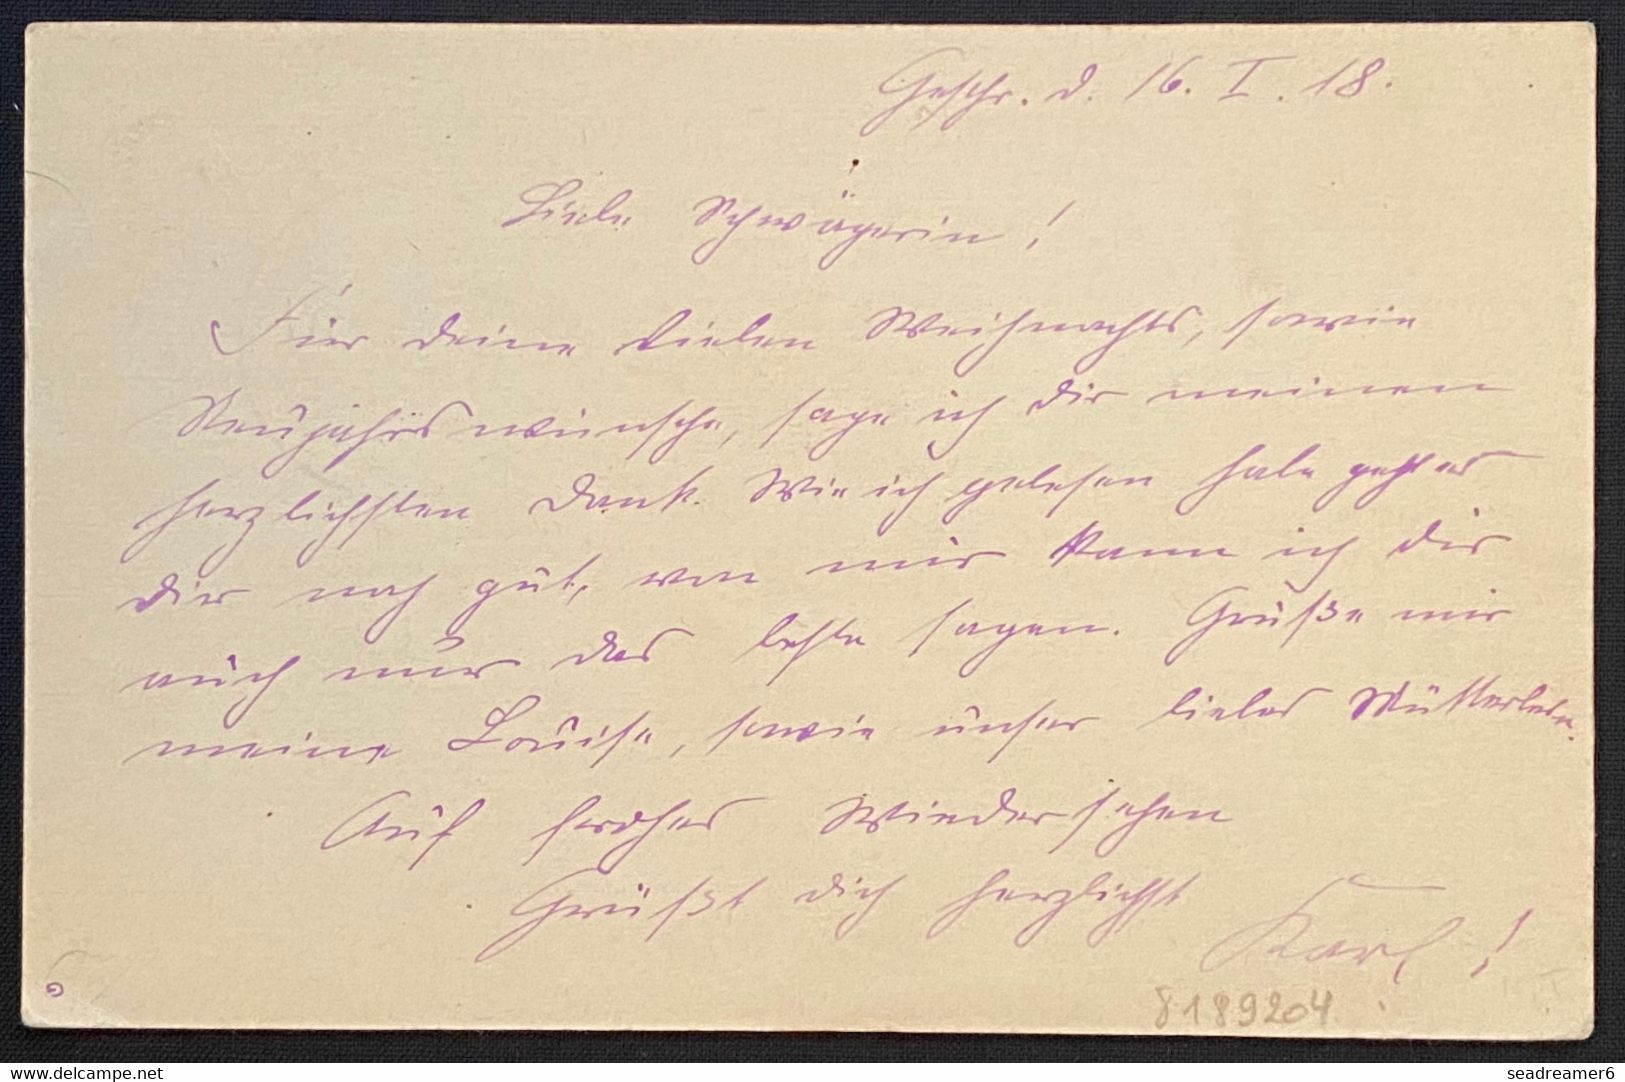 Geschr. d. 16. I. 18.
Liebe Schwägerin!
Für deine vielen Weihnachts, sowie
Neujahrswünsche, sage ich dir meinen
herzlichsten Dank. Wie ich gelesen habe geht es
dir noch gut, von mir kann ich dir
auch nur das beste sagen. Grüße mir
meine Louise, sowie unser liebes Mütterlein.
Auf frohes Wiedersehen
Grüßt dich herzlichst
Karl!
8189204
G
delcampe.net
seadreamer6